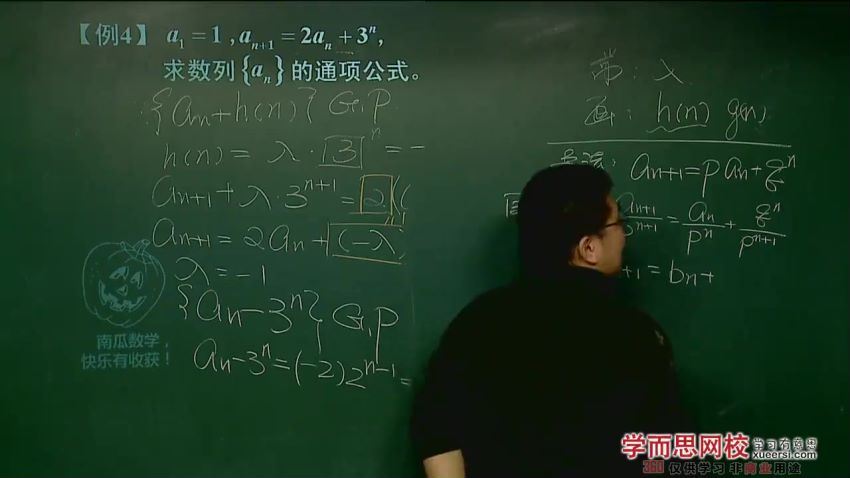 【例4】 a₁=1, aₙ₊₁=2aₙ+3ⁿ,
求数列{aₙ}的通项公式。
{aₙ+h(n)} G.P
h(n) = λ·3ⁿ =
aₙ₊₁+λ·3ⁿ⁺¹ = 2(
aₙ₊₁ = 2aₙ+(-λ)
λ = -1
{aₙ-3ⁿ} G.P
aₙ-3ⁿ=(-2)2ⁿ⁻¹=
南瓜数学，
快乐有收获！
常: λ
h(n) g(n)
: aₙ₊₁=paₙ+qⁿ
aₙ₊₁/pⁿ⁺¹=aₙ/pⁿ+qⁿ/pⁿ⁺¹
+1 = bₙ+
学而思网校 学习有意思
xueersi.com
360 仅供学习 非商业用途